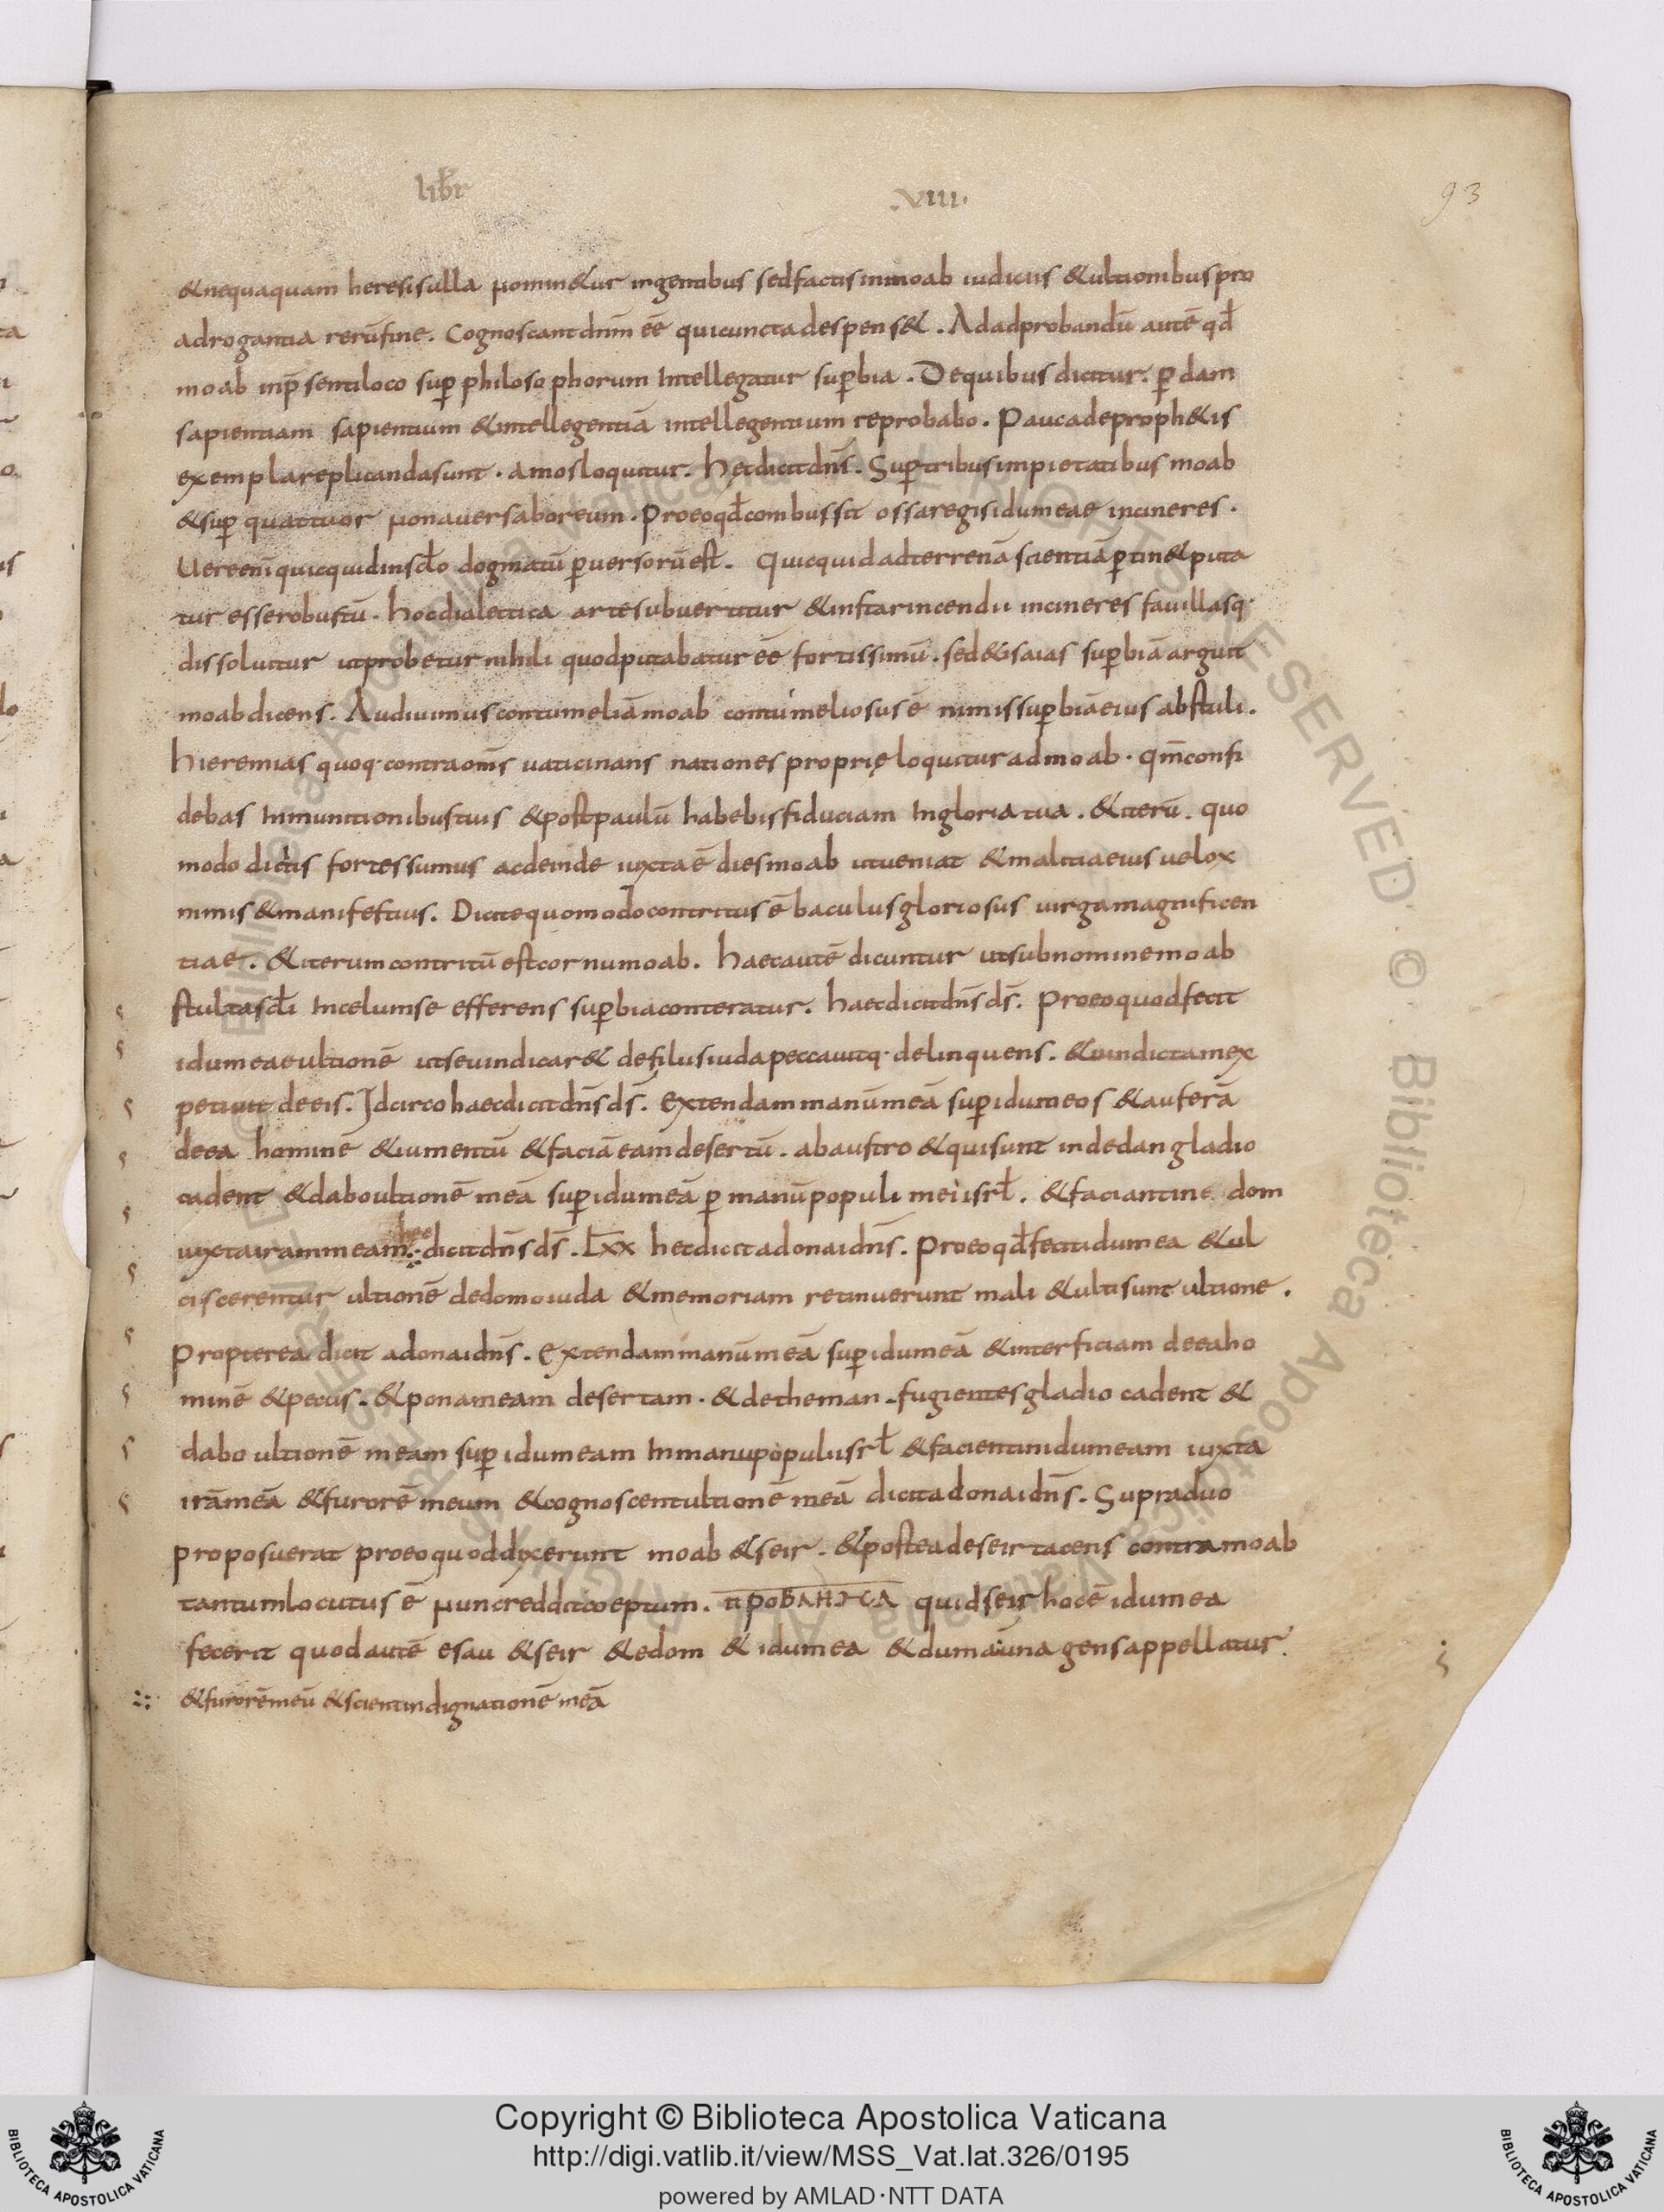 libr VIII.
93
& nequaquam heresis ulla nomin&ur ingentibus sed factis inmoab iudiciis & ultionibus pro
adrogantia rerū fine. Cognoscant dnm̄ eē qui cuncta despens&. Ad adprobandū autē qđ
moab inp̄senti loco sup̱ philosophorum Intellegatur sup̱bia. De quibus dicitur. p̱dam
sapientiam sapientium & intellegentiā intellegentium reprobabo. Pauca de proph&is
exempla replicanda sunt. amos loquitur. hęc dicit dns̄. Sup̱ tribus impietatibus moab
& sup̱ quattuor non aversabor eum. Pro eo qđ combussit ossa regis idumeae incineres.
Vere enī quicquid in scło dogmatū p̱versorū est. Quicquid ad terrenā scientiā p̱tin& puta
tur esse robustū. hoc dialectica arte subvertitur & instar incendii incineres favillasq·
dissolvitur ut probetur nihili quod putabatur eē fortissimū. sed & isaias sup̱biā arguit
moab dicens. Audivimus contumeliā moab contumeliosus ē nimis sup̱biā eius abstuli.
hieremias quoq· contra om̄s vaticinans nationes proprię loquitur ad moab. qm̄ confi
debas Inmunitionibus tuis & post paulū habebis fiduciam Ingloria tua. & iterū. quo
modo dicitis fortes sumus ac deinde iuxta ē dies moab ut veniat & malitia eius velox
nimis & manifestius. Dicite quomodo contritus ē baculus gloriosus virga magnificen
tiae. & iterum contritū est cornu moab. haec autē dicuntur ut sub nomine moab
stulta scłi Incelum se efferens sup̱bia conteratur. haec dicit dns̄ ds̄. Pro eo quod fecit
idumea eultionē ut se vindicar& de filiis iuda peccavitq· delinquens. & vindictam ex
petivit de eis. Idcirco haec dicit dns̄ ds̄. Extendam manūmeā sup̱ idumeos & auferā
de ea hominē & iumentū & faciā eam desertū. ab austro & qui sunt indedan gladio
cadent & dabo ultionē meā sup̱ idumeā p̱ manū populi mei isrł. & faciant in edom
iuxta iram meam hec dicit dns̄ ds̄. Lxx hec dicit adonai dns̄. Pro eo qđ fecit idumea & ul
ciscerentur ultionē de domo iuda & memoriam retinuerunt mali & ulti sunt ultione.
Propterea dicit adonai dns̄. Extendam manūmeā sup̱ idumeā & interficiam de ea ho
minē & pecus. & ponam eam desertam. & de theman. fugientes gladio cadent &
dabo ultionē meam sup̱ idumeam Inmanu populi isrł & facient inidumeam iuxta
irāmeā & furorē meum & cognoscent ultionē meā dicit adonai dns̄. Supra duo
proposuerat pro eo quod dixerunt moab & seir. & postea de seir tacens contra moab
tantum locutus ē nunc reddit coeptum. quid seir hoc ē idumea
fecerit quod autē esau & seir & edom & idumea & duma una gens appellatur.
∴: & furorēmeū & scient indignationē meā
Copyright © Biblioteca Apostolica Vaticana
http://digi.vatlib.it/view/MSS_Vat.lat.326/0195
powered by AMLAD·NTT DATA
BIBLIOTECA APOSTOLICA VATICANA
BIBLIOTECA APOSTOLICA VATICANA